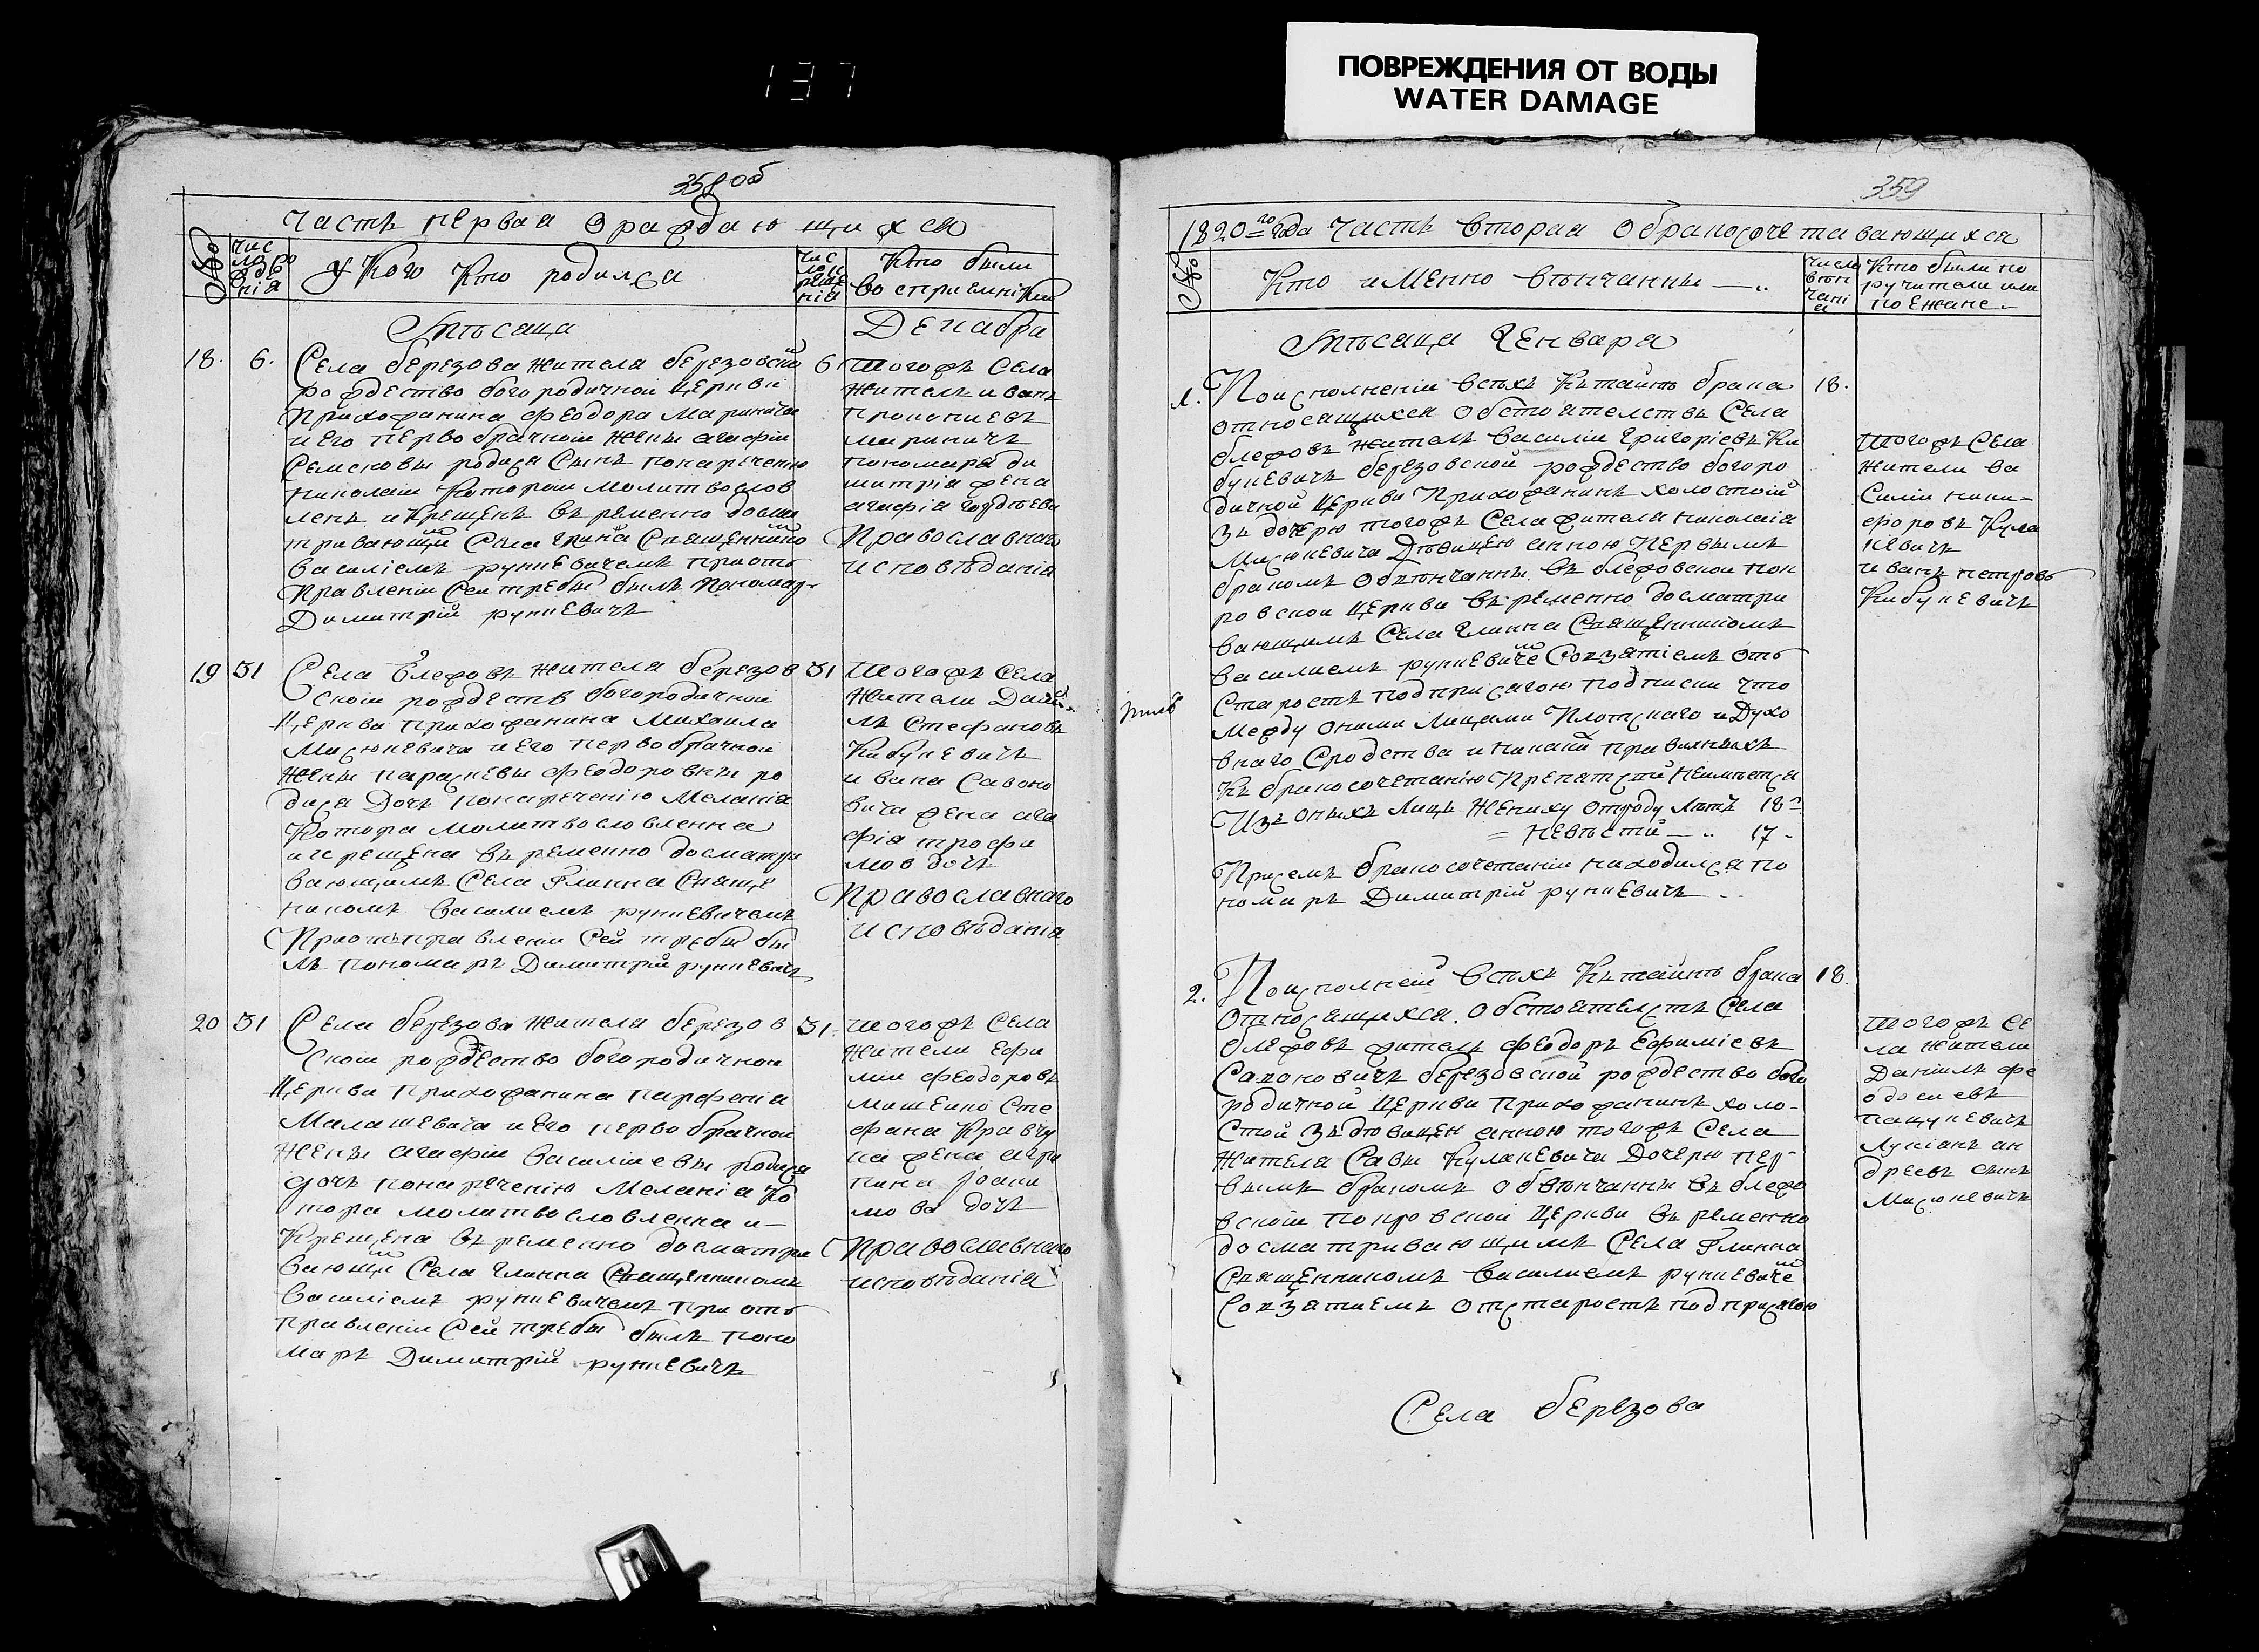 137
ПОВРЕЖДЕНИЯ ОТ ВОДЫ
WATER DAMAGE
358 об
Часть первая о раждающихся
№
Число рождения
У Кого Кто родился
Число крещения
Кто были
воспріемники
Мѣсяца Декабря
18. 6. Села березова жителя березовской 6
рождество богородичной Церкви
Прихожанина Феодора Маринича
и Его первобрачной жены агафіи
Семеновы родися Сынъ понареченію
Николай Которой молитвослов
ленъ и Крещенъ въременно досма
тривающи Села глина Священнико
василіемъ рункевичемъ приотъ
Правленіи Сей требы былъ Пономар
Димитрій рункевичъ
тогожъ Села
житель иванъ
Прокопіевъ
мариничъ
пономаря ди
митріа жена
агафія
Православнаго
исповѣданія
19 31 Села блежовъ жителя березов 31
ской рождеств богородичной
Церкви прихожанина Михаила
Мисюкевича и Его первобрачной
жены параскевы феодоровны ро
дися Дочь понареченію Меланія
Котора молитвословленна
и крещена въременно досматри
вающимъ Села Глинна Свяще
никомъ василиемъ рункевичемъ
Приотправленіи Сей требы бы
лъ пономаръ Димитрій рункевичъ
тогожъ Села
жители Дани
лъ Стефановъ
Кибукевичъ
ивана Савоно
вича жена ага
фія трофи
мов дочь
Православнаго
исповѣданія
20 31 Села березова жителя березов 31.
ской рождество богородичной
Церкви прихожанина парфенія
Малашевича и Его первобрачной
жены агафіи василіевы родися
дочь понареченію Меланіа Ко
тора молитвословленна и-
Крещена въременно досматри
вающи Села Глинна Священникомъ
василіемъ рункевичемъ при отъ
правленіи Сей требы былъ поно
маръ Димитрій рункевичъ
тогожъ Села
жители Ефи
мій феодоровъ
Сте
фана Кравчу
ка жена агри
пина Іоаки
мова дочь
Православнаго
исповѣданія
359
1820го года Часть вторая о бракосочетавающихся
№
Кто именно вѣнчанны
число вѣнчанія
Кто были по
ручители или
поежане
Мѣсяца Генваря
1. Поисполненіи всѣхъ Кътайнѣ брака 18.
относящихся обстоятелствъ Села
блежовъ житель василій григоріевъ Ки
букевичъ березовской рождество богоро
дичной Церкви Прихожанинъ холостой
зъ дочерю тогожъ Села жителя николаія
Мисюкевича Дѣвицею анною Первымъ
бракомъ обвѣнчанны въ блежовской пок
ровской Церкви въременно досматри
вающимъ Села Глинна Священникомъ
василиемъ рункевиче Совзятіемъ отъ
Старостъ подприсягою подписки что
между оними лицами Плотскаго и Духо
внаго Сродства и никаки правилныхъ
Къ бракосочетанію Препятстій неимѣется
Изъ оныхъ лицъ Жениху отроду лѣтъ 18
= Невѣстѣ — 17
Присемъ бракосочетаніи находился по
номаръ Димитрій рункевичъ
тогожъ Села
жители ва
силій ники-
форовъ Кула
кевичъ
иванъ петровъ
Кибукевичъ
2. Поисполненіи всѣхъ Кътайнѣ брака 18.
относящихся обстоятелстъ Села
блежовъ житель феодоръ Ефиміевъ
Сахоновичъ березовской рождество бого
родичной Церкви прихожанинъ холо-
стой зъ дѣвицею анною тогожъ Села
жителя Савы Кулакевича Дочерю пер-
вымъ бракомъ обвѣнчанны въ блежо
вской покровской Церкви въременно
досматривающимъ Села Глинна
Священникомъ василиемъ рункевиче
Совзятиемъ отстаростъ подприсягою
тогожъ Се
ла жители
Даніилъ фе
одосиевъ
пацукевичъ
лукіанъ ан
дреевъ сынъ
Мисюкевичъ
Села березова